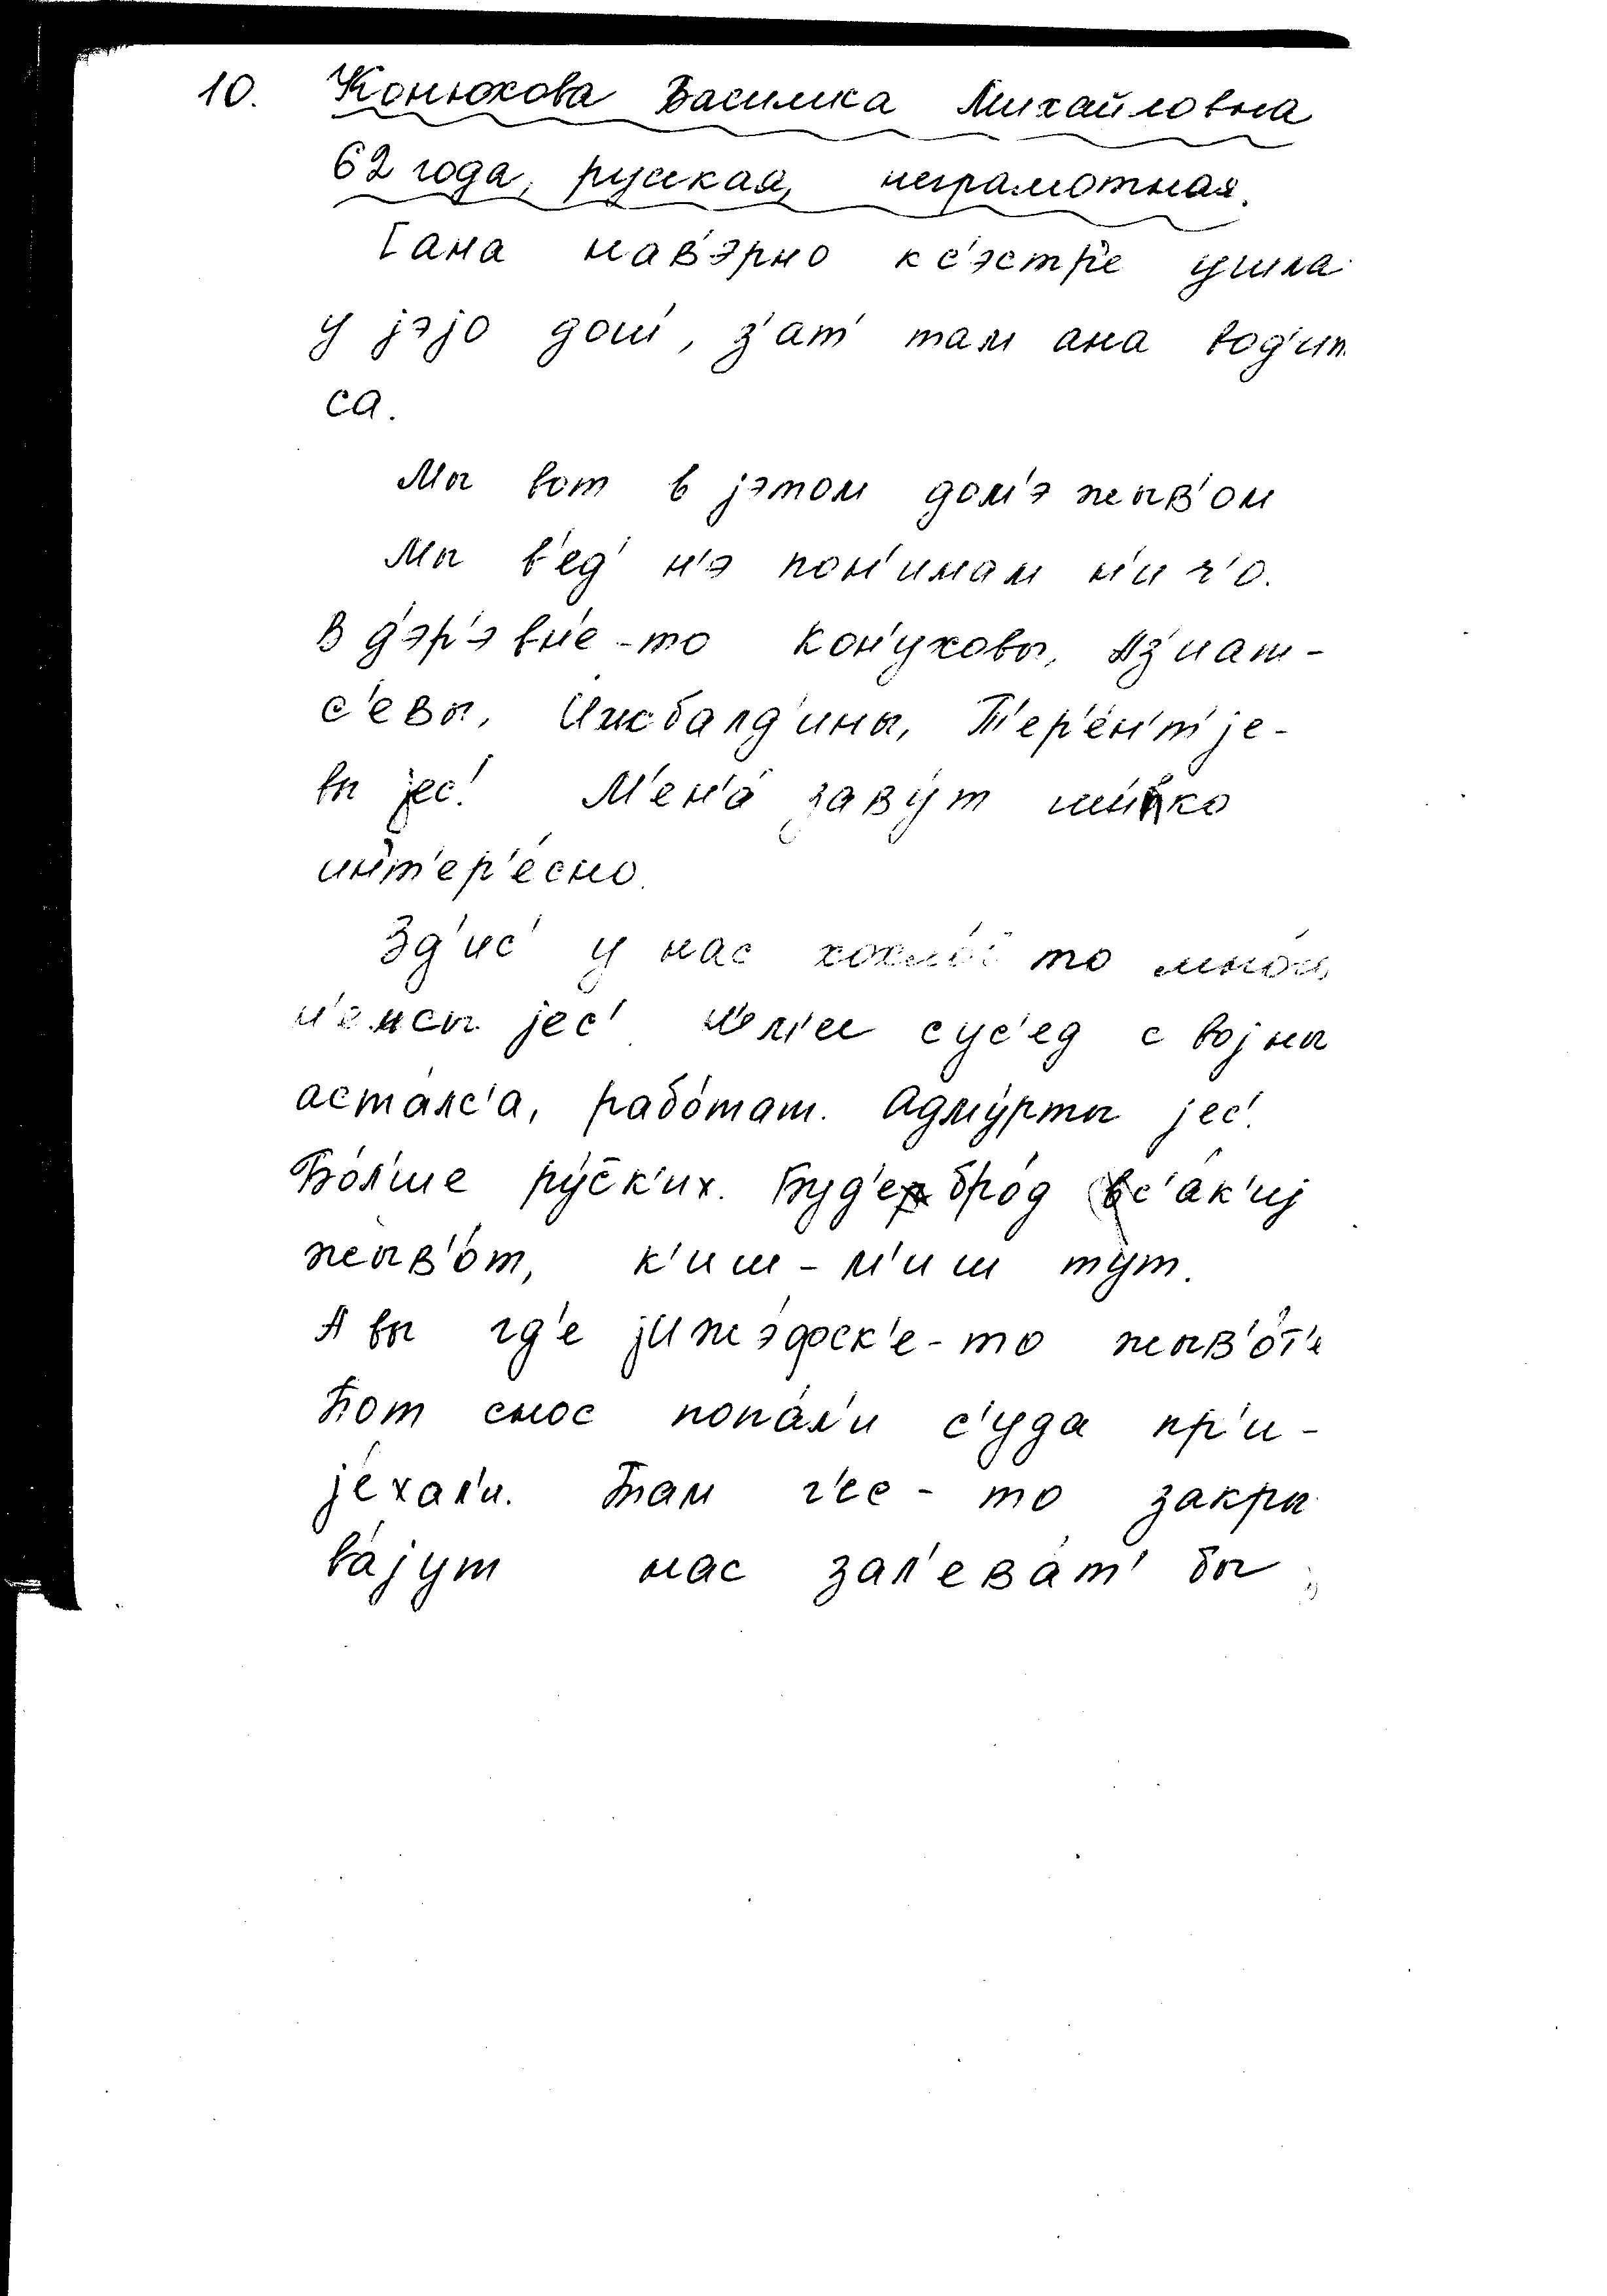 10. Конюхова Василиса Михайловна
62 года, русская, неграмотная.
[ана нав'эрно к с'эстр'е ушла
у jэjо дош', з'ат' там ана вод'ит
са.
Мы вот в jэтом дом'э жыв'ом
Мы в'ед' н'э пон'имам н'и ч'о.
В д'эр'эвн'е-то Кон'уховы, Аз'иат-
с'евы, Ижбалд'ины, Т'ер'е́н'т'jе-
вы jес'. М'ен'а́ заву́т ши́пко
ин'т'ер'е́сно.
Зд'ис' у нас то
н'е́мсы jес'. сус'ед с воjны
аста́лс'а, рабо́тат. Адму́рты jес'.
Бо́л'ше ру́с̄к'их. Буд'е бро́д вс'а́к'иj
жыв'о́т, к'иш-м'иш ту́т.
А вы гд'е jижэ́фск'е-то жыв'о́т'е
Вот снос попа́л'и с'уда пр'и-
jе́хал'и. Там г'ес-то закры
ва́jут нас зал'ева́т' бы